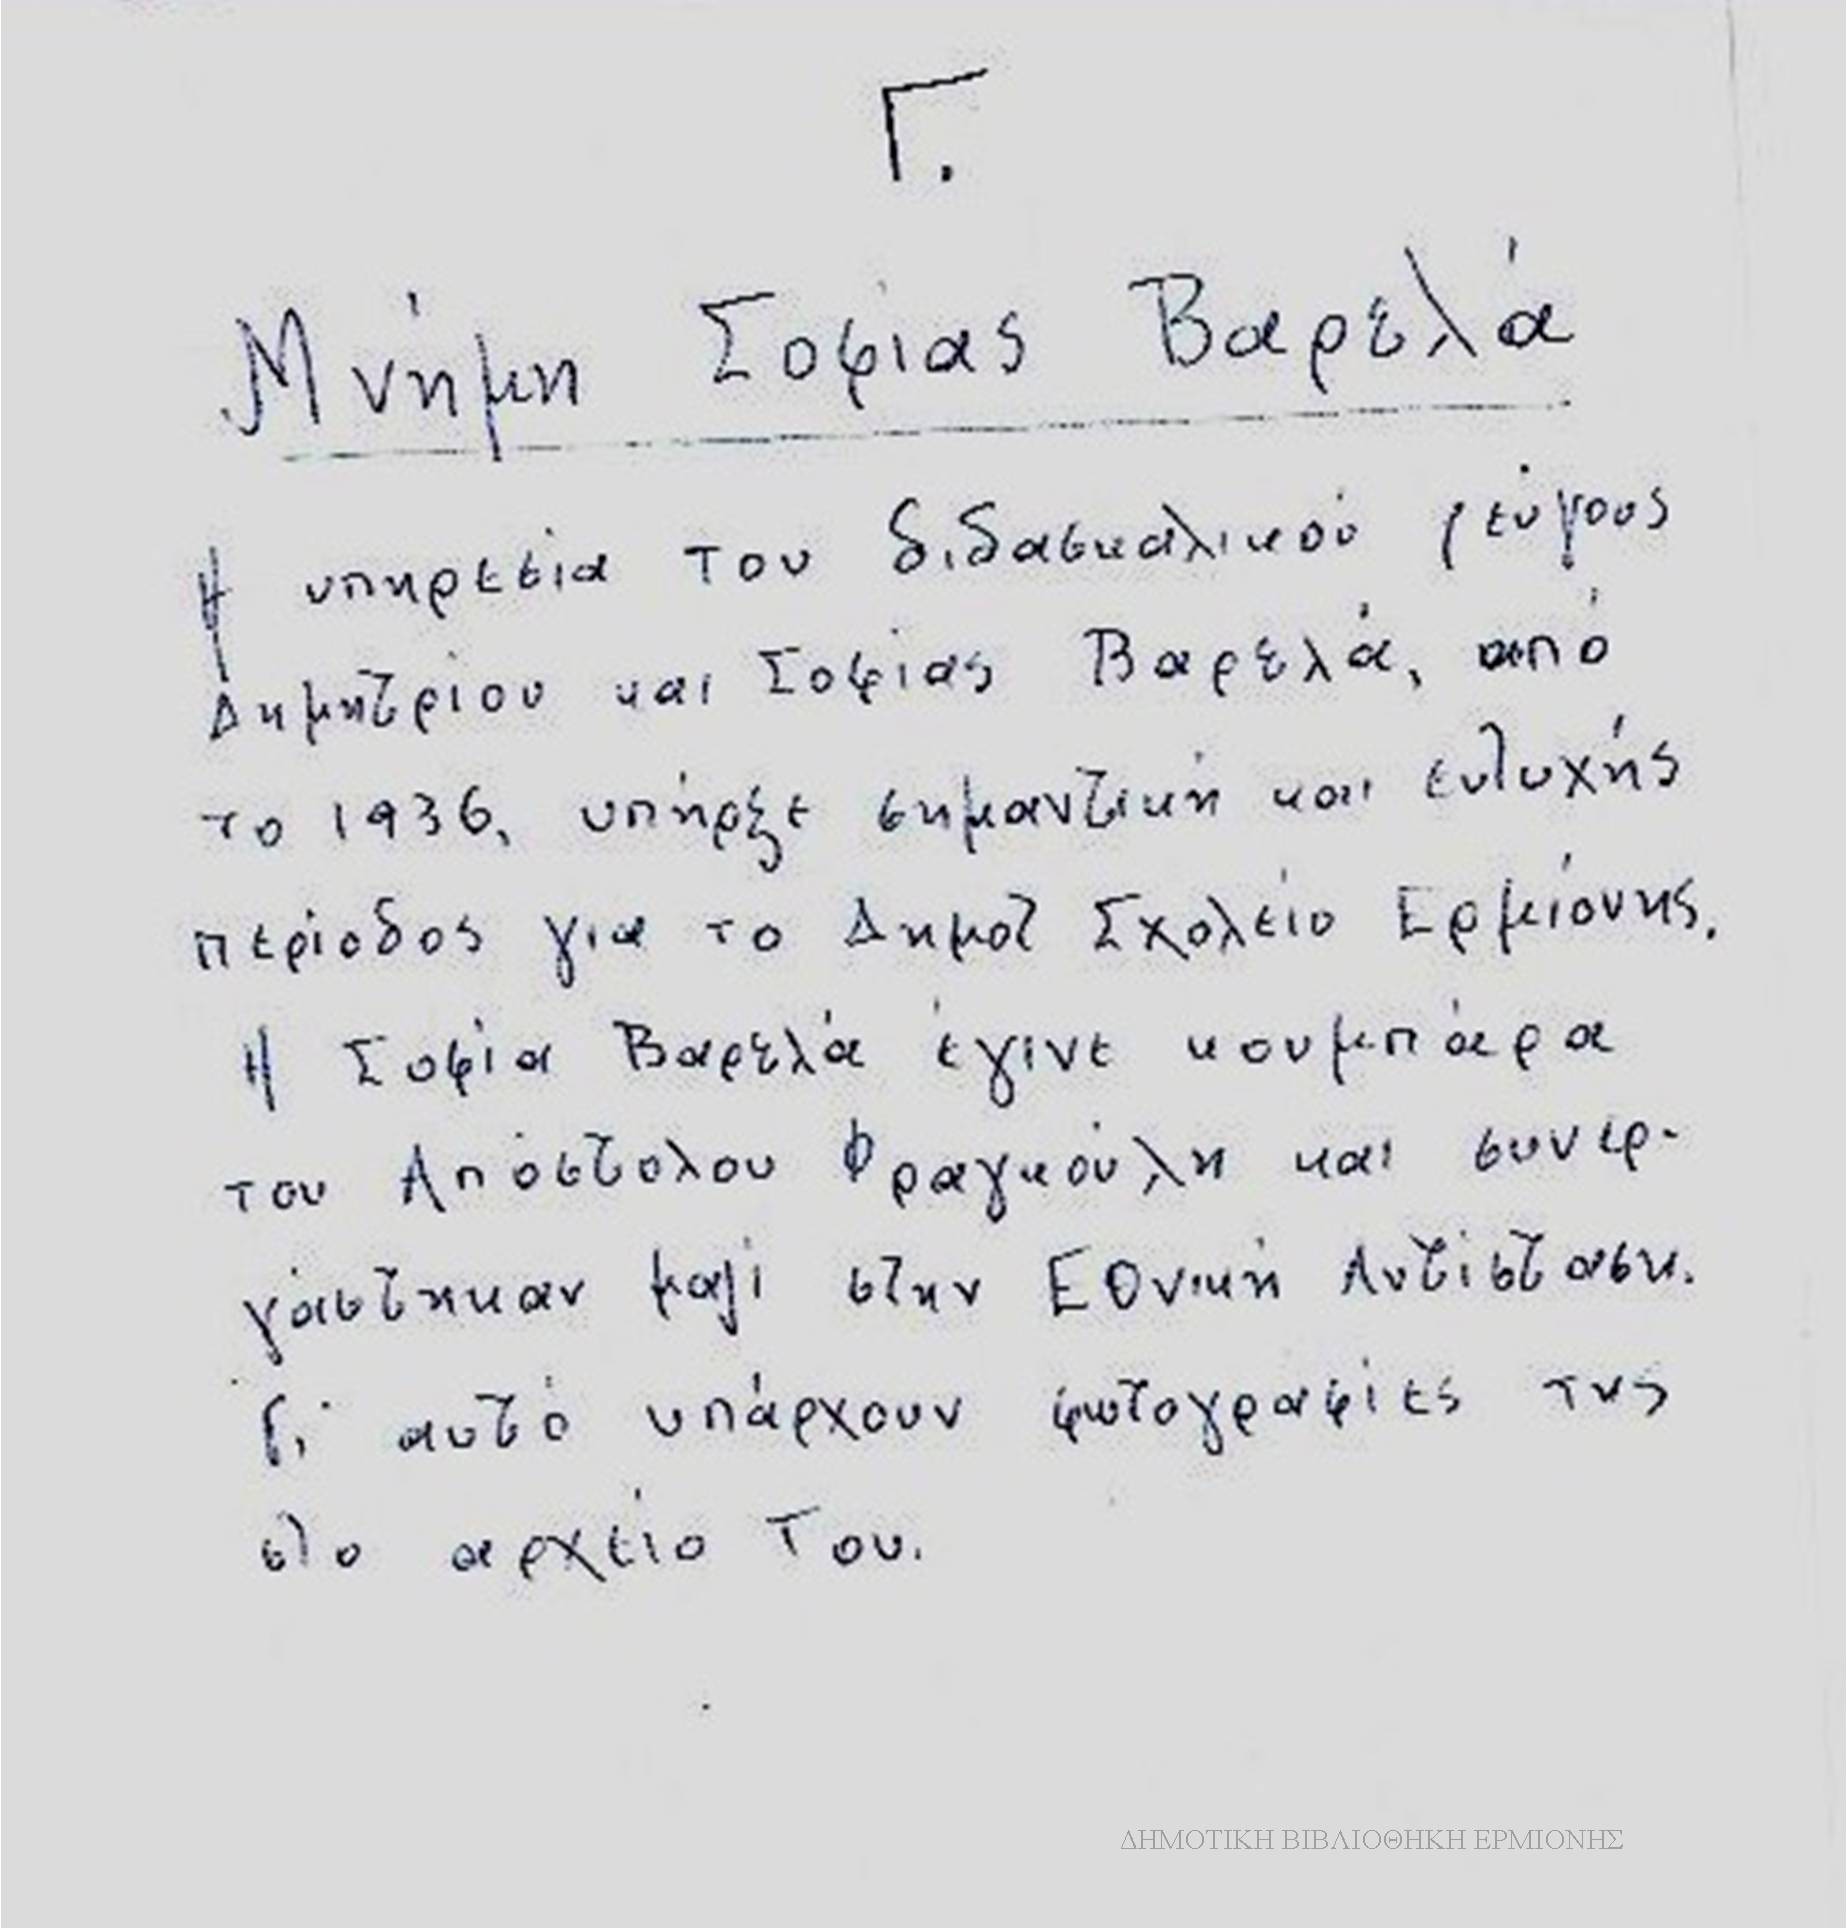 Γ.
Μνήμη Σοφίας Βαρελά
Η υπηρεσία του διδασκαλικού ζεύγους
Δημητρίου και Σοφίας Βαρελά, από
το 1936, υπήρξε σημαντική και ευτυχής
περίοδος για το Δημοτ Σχολείο Ερμιόνης.
Η Σοφία Βαρελά έγινε κουμπάρα
του Απόστολου Φραγκούλη και συνερ-
γάστηκαν μαζί στην Εθνική Αντίσταση.
Γι' αυτό υπάρχουν φωτογραφίες της
στο αρχείο Του.
ΔΗΜΟΤΙΚΗ ΒΙΒΛΙΟΘΗΚΗ ΕΡΜΙΟΝΗΣ